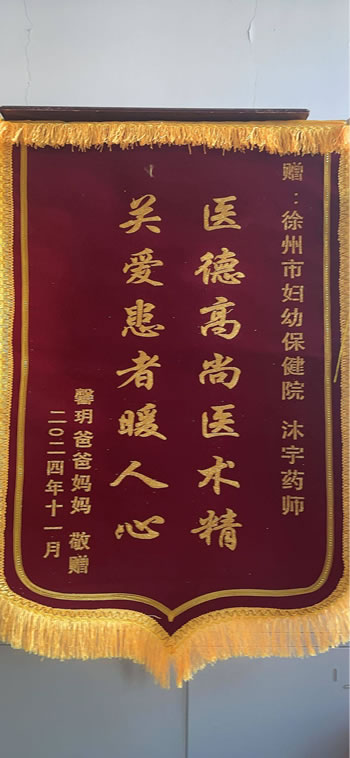 赠：徐州市妇幼保健院 沐宇药师
医德高尚医术精
关爱患者暖人心
馨玥爸爸妈妈 敬赠
二〇二四年十一月